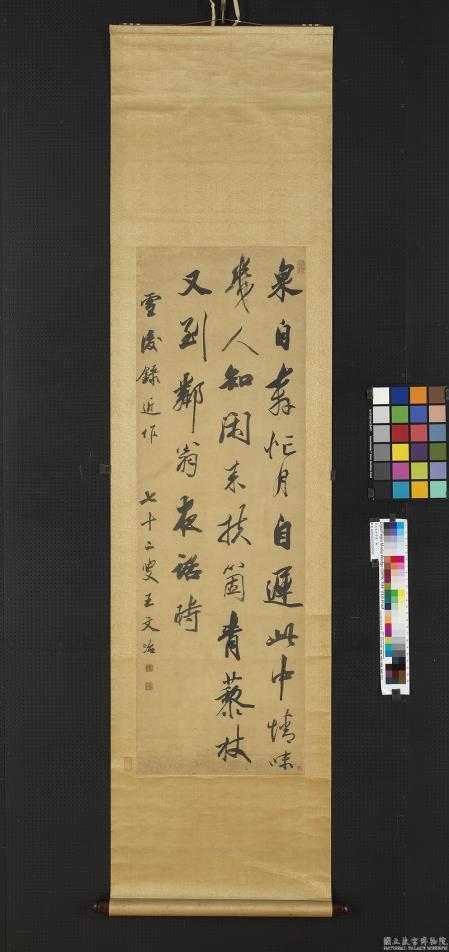 泉自奔忙月自遲此中情味
幾人知閑來扶箇青藜杖
又到鄰翁夜話時
雪後錄近作 七十二叟王文治
國立故宮博物院
NATIONAL PALACE MUSEUM